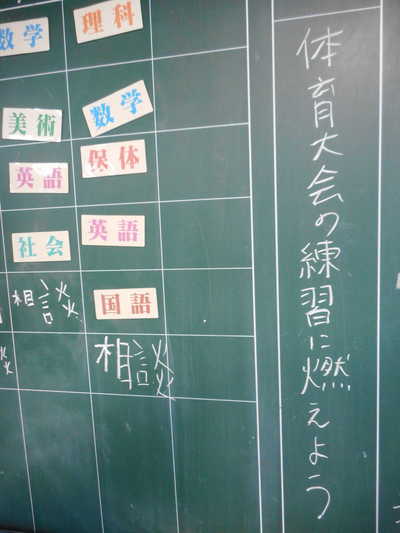 体育大会の練習に燃えよう
理科
数学
保体
英語
国語
相談
数学
美術
英語
社会
相談